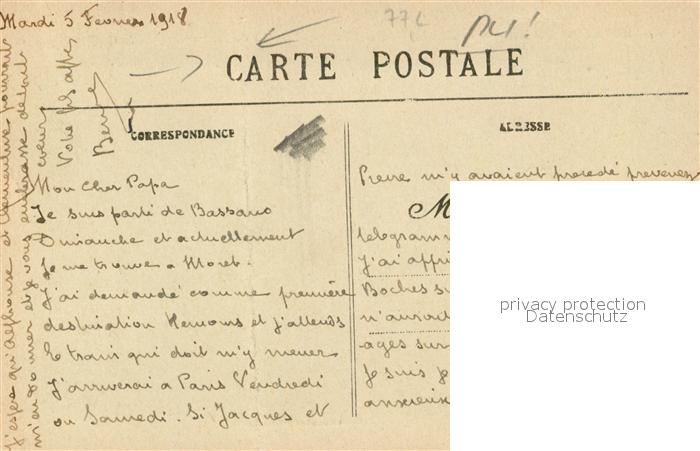 Mardi 5 Fevrier 1918
77L
CARTE POSTALE
CORRESPONDANCE
ADRESSE
Mon cher Papa
Je suis parti de Bassano
Dimanche et actuellement
Je me trouve a Moret.
J'ai demandé comme première
destination Nemours et j'attends
le train qui doit m'y mener
J'arriverai a Paris Vendredi
ou Samedi. Si Jacques et
Pierre m'y avaient precedé prevenez
M
telegramm
J'ai appri
Boches su
n'auront
ages sur
Je suis
anxieux
J'espère qu'Alphonse et pourront
m'en donner et je vous embrasse de tout
coeur
Votre fils
privacy protection
Datenschutz